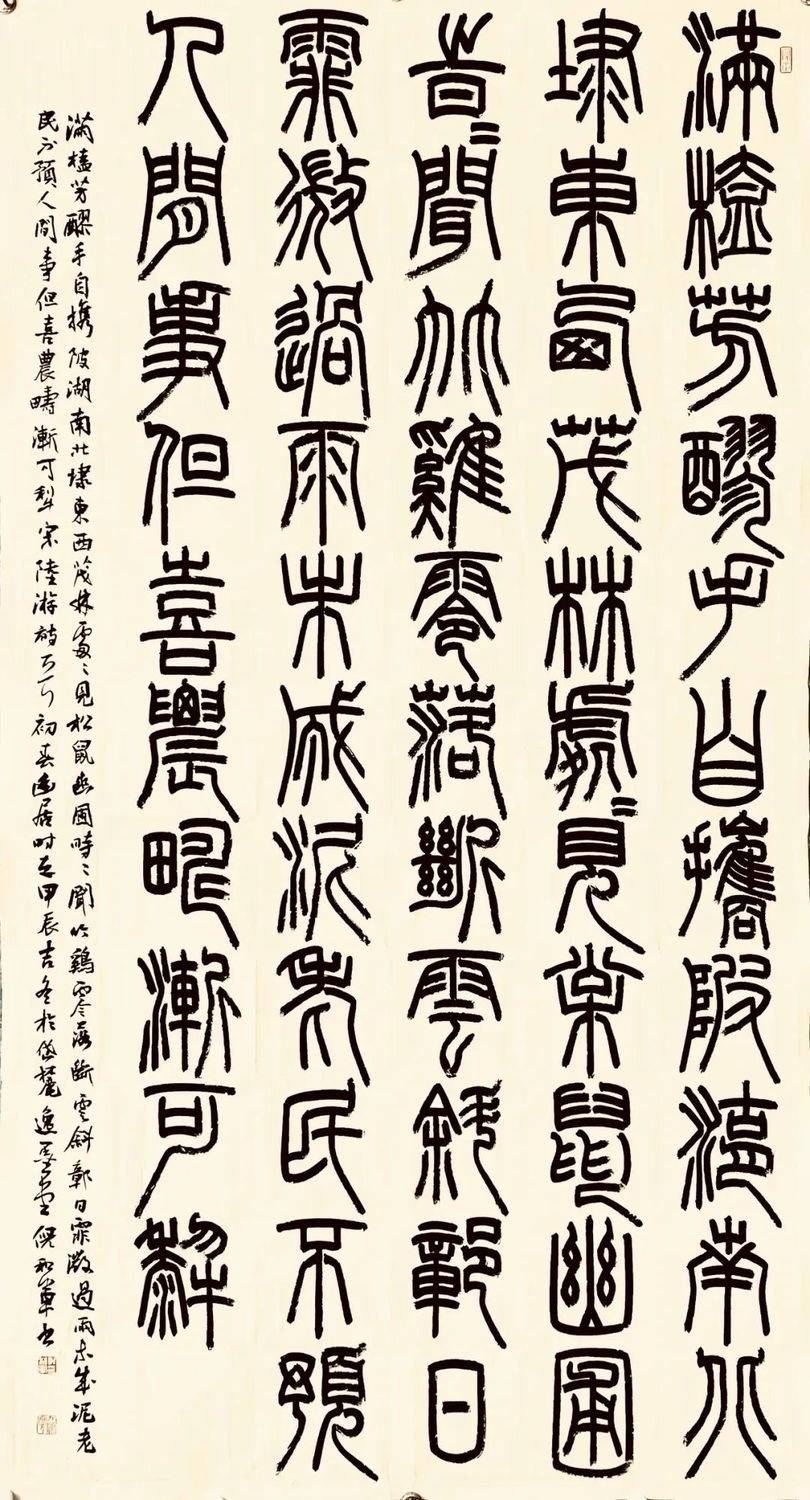 滿榼芳醪手自攜陂湖南北
埭東西茂林處〻見松鼠幽圃
時〻聞竹雞零落斷雲斜鄣日
霏微過雨未成泥老民不預
人間事但喜農疇漸可犁
滿榼芳醪手自攜陂湖南北埭東西茂林處〻見松鼠幽圃時〻聞竹鷄零落斷雲斜鄣日霏微過雨未成泥老
民不預人間事但喜農疇漸可犁宋陸游詩初春幽居时在甲辰吉冬於岱麓逸墨堂倪和軍书